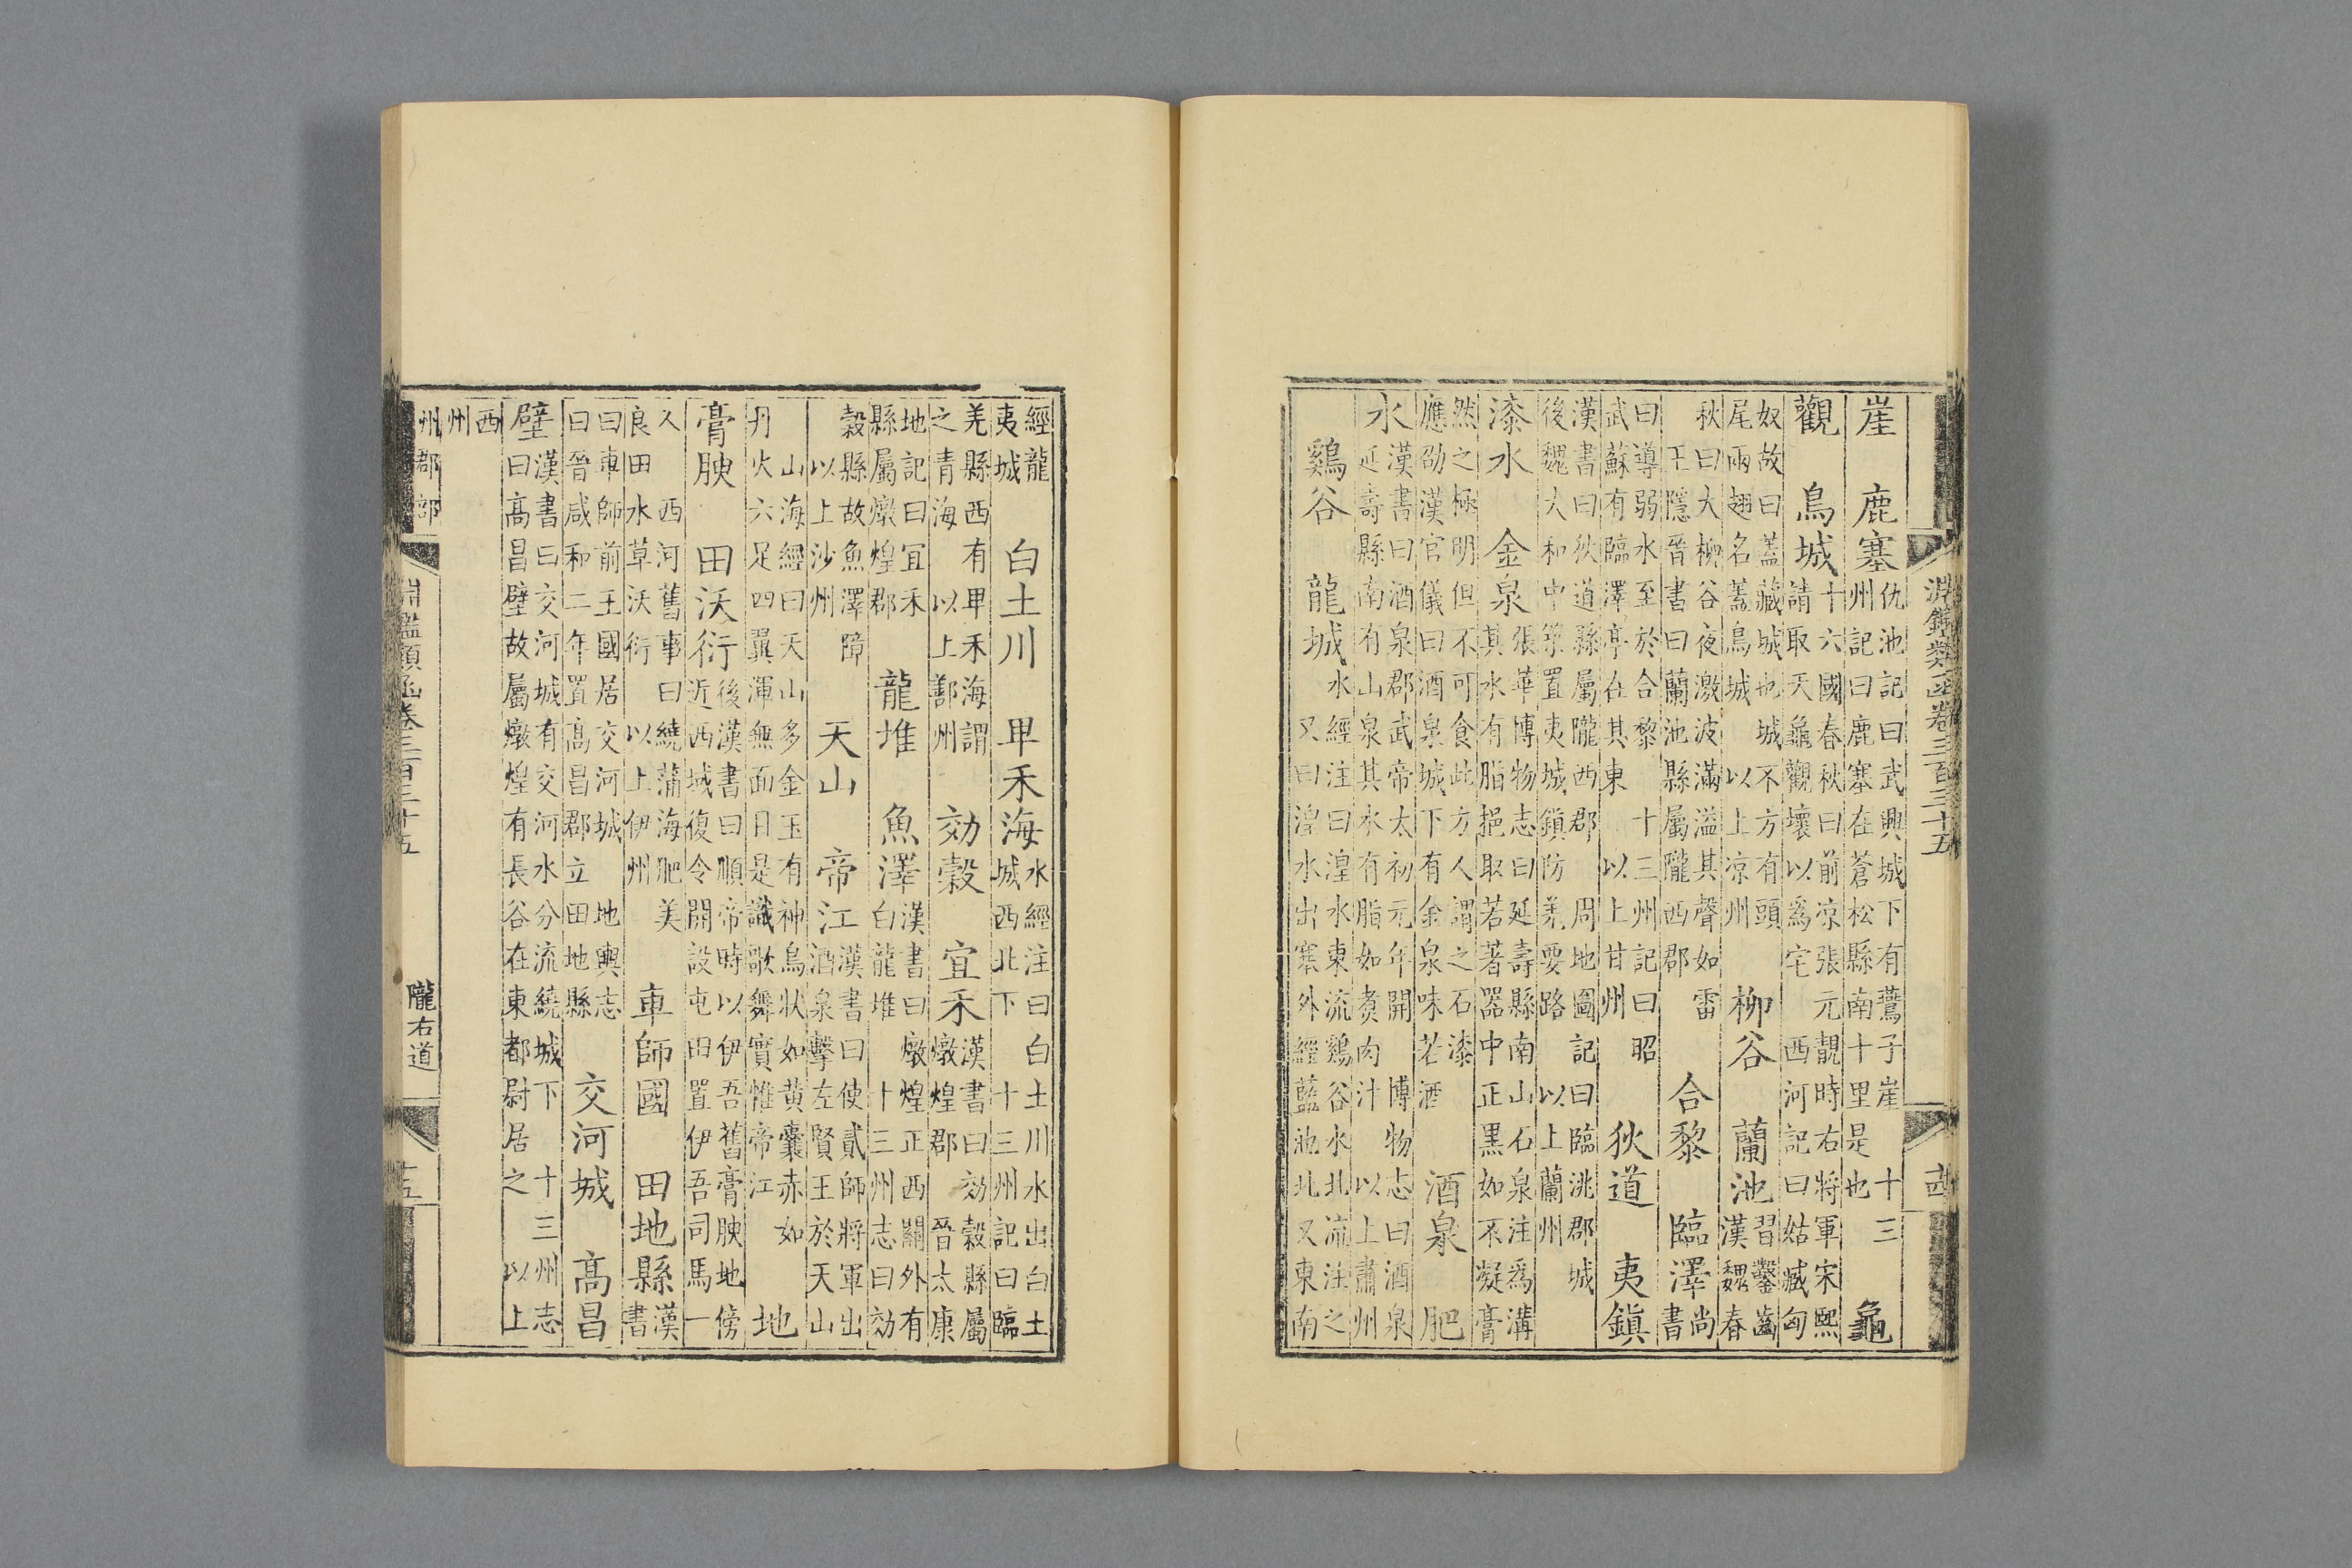 淵鑑類函卷三百三十五 十四
崖 鹿塞仇池記曰武興城下有鷰子崖 十三州記曰鹿塞在蒼松縣南十里是也 龜
觀 烏城十六國春秋曰前凉張元靚時右將軍宋熙請取天龜觀壞以爲宅 西河記曰姑臧匈
奴故曰蓋藏城也城不方有頭尾兩翅名蓋烏城 以上凉州 柳谷 蘭池習鑿齒漢魏春
秋曰大柳谷夜激波滿溢其聲如雷 王隱晉書曰蘭池縣屬隴西郡 合黎 臨澤尚書
曰導弱水至於合黎 十三州記曰昭武蘇有臨澤亭在其東 以上甘州 狄道 夷鎮
漢書曰狄道縣屬隴西郡 周地圖記曰臨洮郡城後魏大和中築置夷城鎮防羌要路 以上蘭州
漆水 金泉張華博物志曰延壽縣南山石泉注爲溝其水有脂挹取若著器中正黑如不凝膏
然之極明但不可食此方人謂之石漆 應劭漢官儀曰酒泉城下有金泉味若酒 酒泉 肥
水漢書曰酒泉郡武帝太初元年開 博物志曰酒泉延壽縣南有山泉其水有脂如煑肉汁 以上肅州
鷄谷 龍城水經注曰湟水東流鷄谷水北流注之又曰湟水出塞外經藍池北又東南
經龍夷城 白土川 卑禾海水經注曰白土川水出白土城西北下 十三州記曰臨
羌縣西有卑禾海謂之青海 以上鄯州 効穀 宜禾漢書曰効穀縣屬燉煌郡 晉太康
地記曰宜禾縣屬燉煌郡 龍堆 魚澤漢書曰燉煌正西關外有白龍堆 十三州志曰効
穀縣故魚澤障 以上沙州 天山 帝江漢書曰使貳師將軍出酒泉擊左賢王於天山
山海經曰天山多金玉有神鳥狀如黄囊赤如丹火六足四翼渾無面目是識歌舞實惟帝江 地
膏腴 田沃衍後漢書曰順帝時以伊吾舊膏腴地傍近西域復令開設屯田置伊吾司馬一
人 西河舊事曰繞蒲海肥美良田水草沃衍 以上伊州 車師國 田地縣漢書
曰車師前王國居交河城 地輿志曰晉咸和二年置高昌郡立田地縣 交河城 高昌
壁漢書曰交河城有交河水分流繞城下 十三州志曰高昌壁故屬燉煌有長谷在東都尉居之 以上
西州
州郡部 淵鑑類函卷三百三十五 隴右道 十五